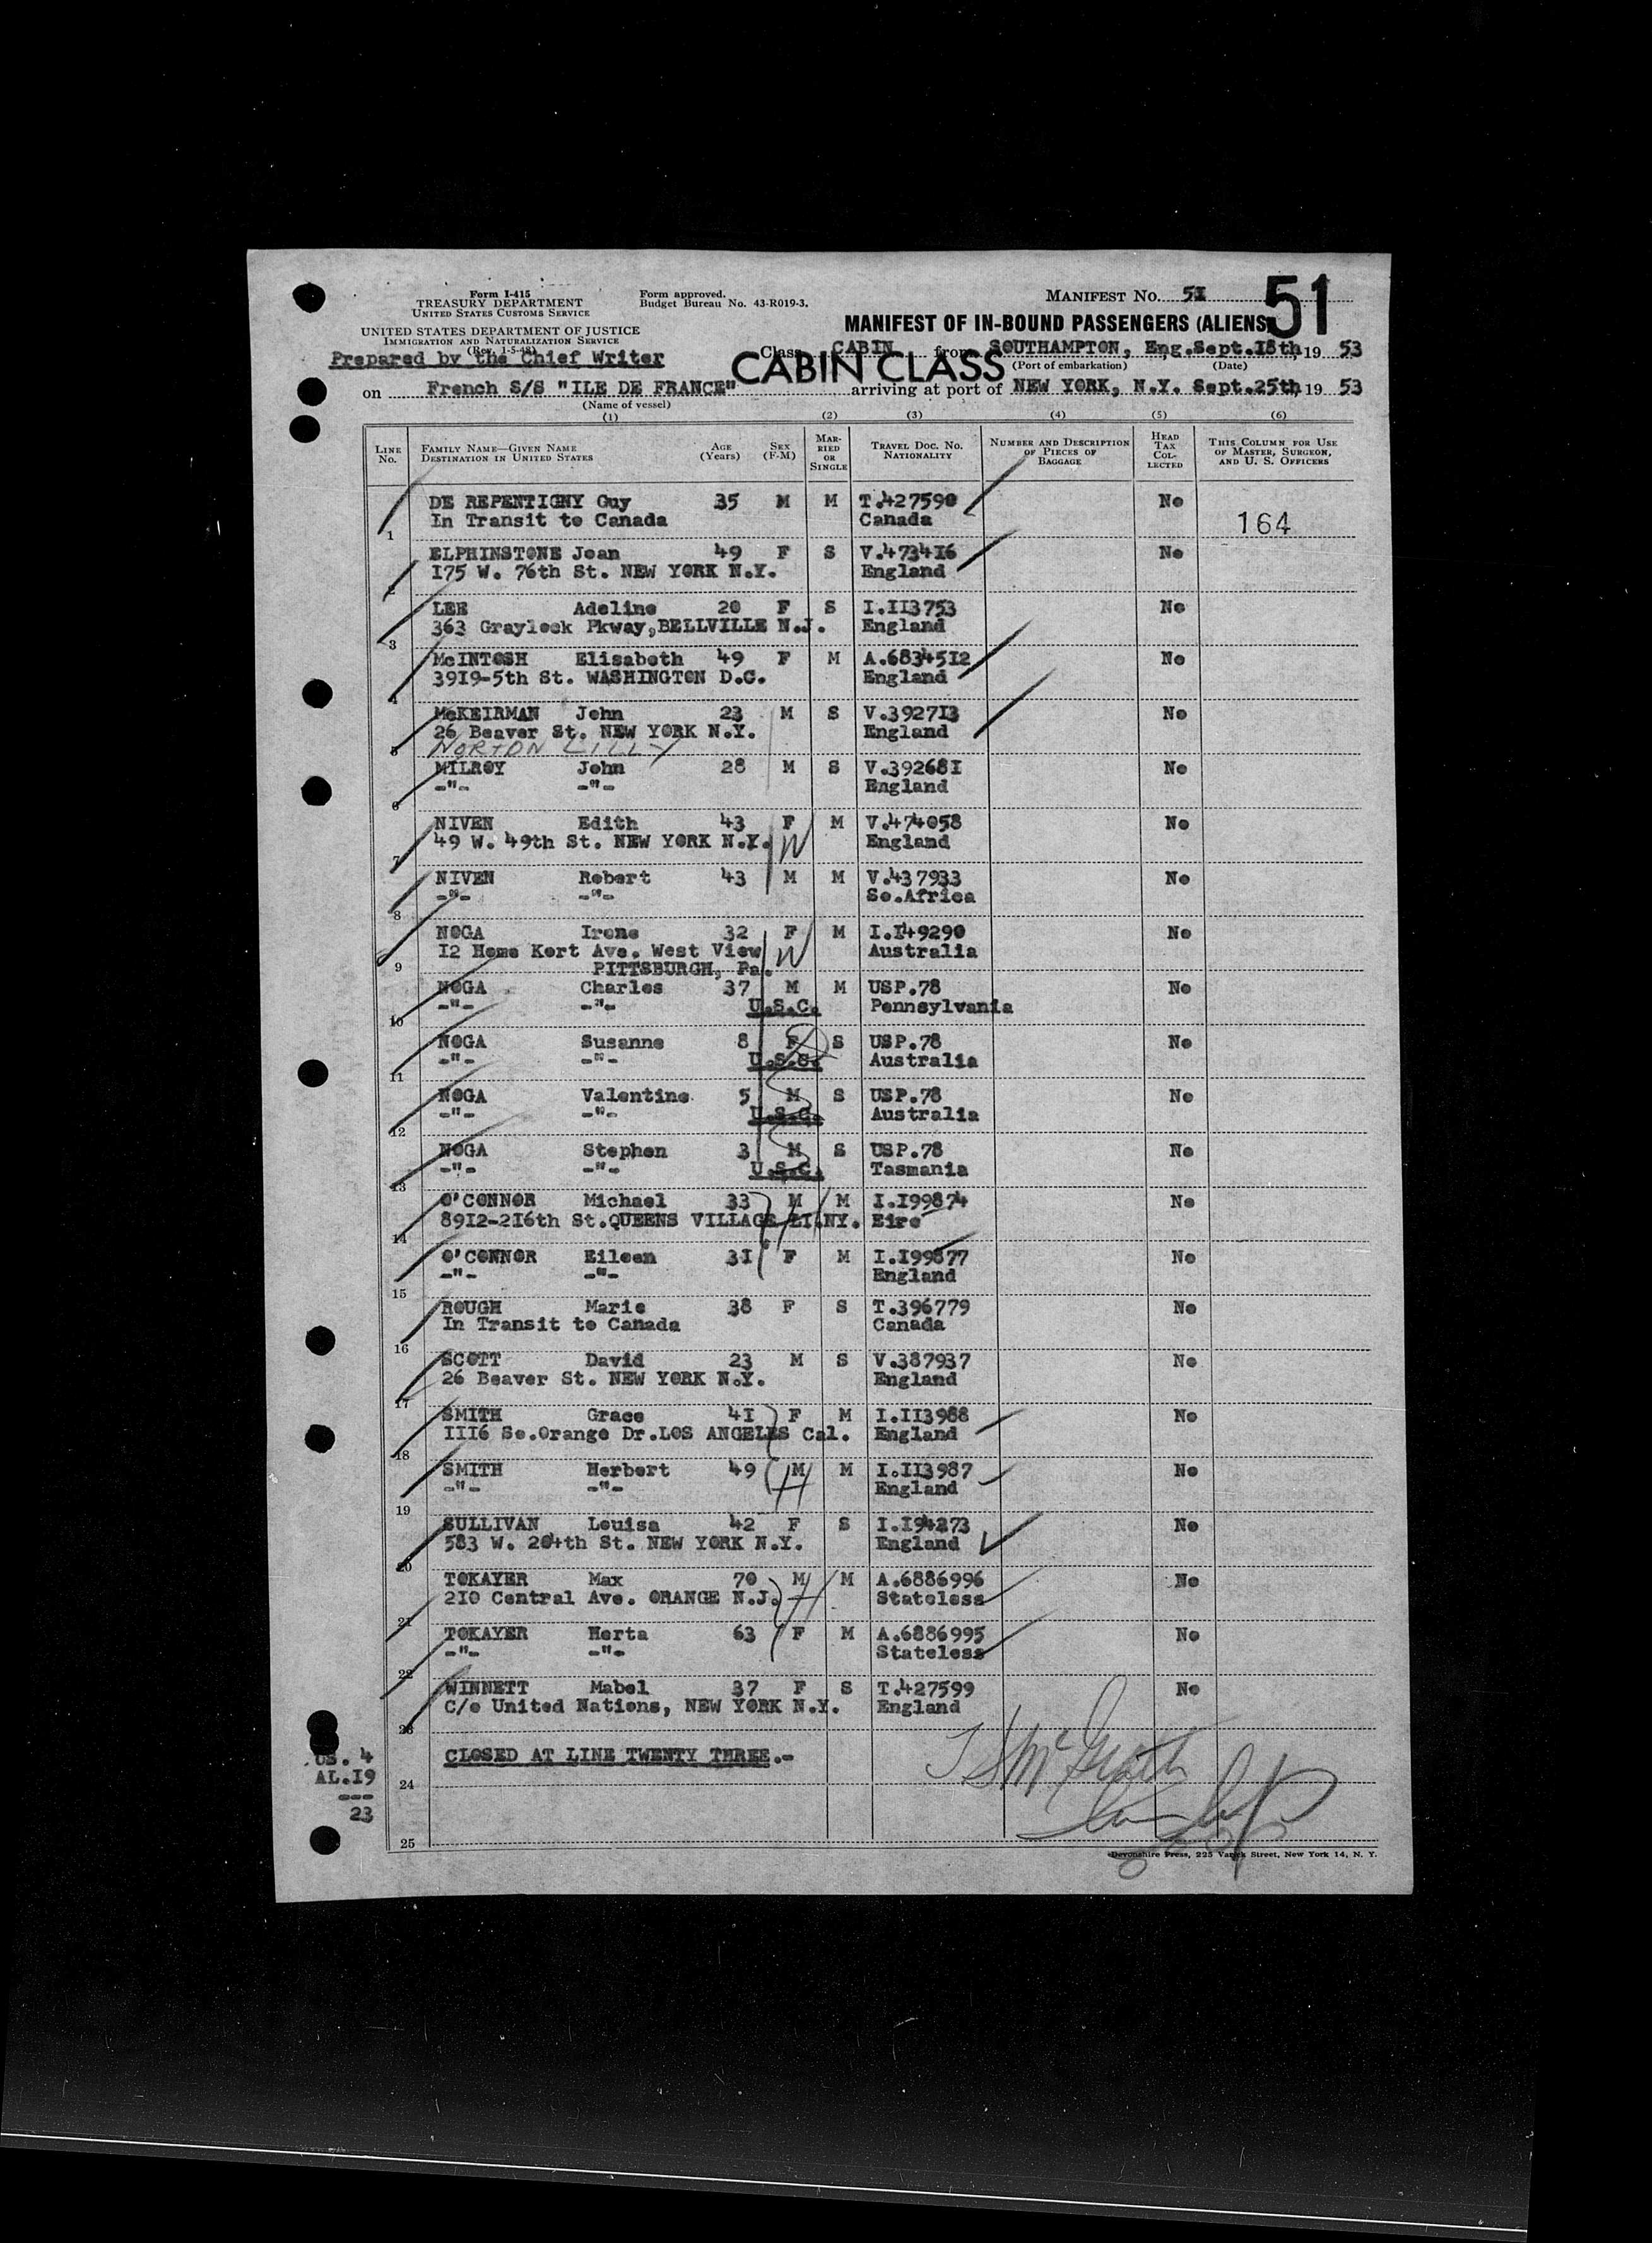 Form I-415
TREASURY DEPARTMENT
UNITED STATES CUSTOMS SERVICE
UNITED STATES DEPARTMENT OF JUSTICE
IMMIGRATION AND NATURALIZATION SERVICE
(Rev. 1-5-48)
Prepared by the Chief Writer
Form approved.
Budget Bureau No. 43-R019-3.
MANIFEST NO. 5I
51
MANIFEST OF IN-BOUND PASSENGERS (ALIENS
Class CABIN from SOUTHAMPTON, Eng. Sept.I8th, 19 53
(Port of embarkation) (Date)
CABIN CLASS
on French S/S "ILE DE FRANCE" arriving at port of NEW YORK, N.Y. Sept.25th, 19 53
(Name of vessel)
(1) (2) (3) (4) (5) (6)
LINE No. FAMILY NAME—GIVEN NAME DESTINATION IN UNITED STATES AGE (Years) SEX (F-M) MARRIED OR SINGLE TRAVEL DOC. NO. NATIONALITY NUMBER AND DESCRIPTION OF PIECES OF BAGGAGE HEAD TAX COLLECTED THIS COLUMN FOR USE OF MASTER, SURGEON, AND U. S. OFFICERS
1 DE REPENTIGNY Guy 35 M M T.427590 No
In Transit to Canada Canada 164
2 ELPHINSTONE Jean 49 F S V.4734I6 No
I75 W. 76th St. NEW YORK N.Y. England
3 LEE Adeline 20 F S I.II3753 No
363 Graylock Pkway,BELLVILLE N.J. England
4 McINTOSH Elisabeth 49 F M A.68345I2 No
39I9-5th St. WASHINGTON D.C. England
5 McKEIRMAN John 23 M S V.3927I3 No
26 Beaver St. NEW YORK N.Y. England
NORTON LILLY
6 MILROY John 28 M S V.39268I No
-"- -"- England
7 NIVEN Edith 43 F M V.474058 No
49 W. 49th St. NEW YORK N.Y. W England
8 NIVEN Robert 43 M M V.437933 No
-"- -"- So.Africa
9 NOGA Irene 32 F M I.I49290 No
I2 Home Kort Ave. West View W Australia
PITTSBURGH, Pa.
10 NOGA Charles 37 M M USP.78 No
-"- -"- U.S.C. Pennsylvania
11 NOGA Susanne 8 F S USP.78 No
-"- -"- U.S.C. Australia
12 NOGA Valentine 5 M S USP.78 No
-"- -"- U.S.C. Australia
13 NOGA Stephen 3 M S USP.78 No
-"- -"- U.S.C. Tasmania
14 O'CONNOR Michael 33 M M I.I99874 No
89I2-2I6th St.QUEENS VILLAGE LI.NY. H Eire
15 O'CONNOR Eileen 3I F M I.I99877 No
-"- -"- England
16 ROUGH Marie 38 F S T.396779 No
In Transit to Canada Canada
17 SCOTT David 23 M S V.387937 No
26 Beaver St. NEW YORK N.Y. England
18 SMITH Grace 4I F M I.II3988 No
III6 So.Orange Dr.LOS ANGELES Cal. England
19 SMITH Herbert 49 M M I.II3987 No
-"- -"- H England
20 SULLIVAN Louisa 42 F S I.I94273 No
583 W. 204th St. NEW YORK N.Y. England
21 TOKAYER Max 70 M M A.6886996 No
2I0 Central Ave. ORANGE N.J. H Stateless
22 TOKAYER Herta 63 F M A.6886995 No
-"- -"- Stateless
23 WINNETT Mabel 37 F S T.427599 No
C/o United Nations, NEW YORK N.Y. England
US. 4 CLOSED AT LINE TWENTY THREE.-
AL.I9
24
---
23
25
Devonshire Press, 225 Varick Street, New York 14, N. Y.